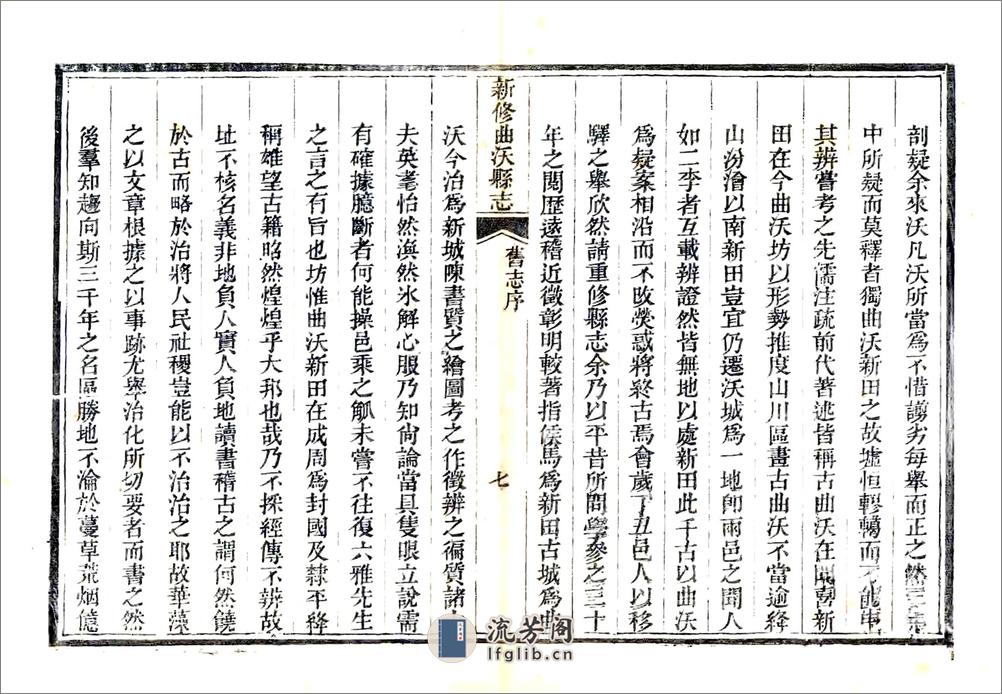 剖疑余來沃凡沃所當為不惜謭劣每舉而正之然
中所疑而莫釋者獨曲沃新田之故墟恒轇轕而不能申
其辨嘗考之先儒注疏前代著述皆稱古曲沃在聞喜新
田在今曲沃坊以形勢推度山川區畫古曲沃不當逾絳
山汾澮以南新田豈宜仍遷沃城為一地卽兩邑之聞人
如二李者互載辨證然皆無地以處新田此千古以曲沃
為疑案相沿而不改熒惑將終古焉會歲丁丑邑人以移
驛之舉欣然請重修縣志余乃以平昔所問學參之三十
年之閱歷遠稽近徵彰明較著指侯馬為新田古城為曲
新修曲沃縣志
舊志序
七
沃今治為新城陳書質之繪圖考之作徵辨之徧質諸士
夫英耄怡然渙然氷解心服乃知尙論當具隻眼立說需
有確據臆斷者何能操邑乘之觚未嘗不往復六雅先生
之言之有旨也坊惟曲沃新田在成周為封國及隸平絳
稱雄望古籍昭然煌煌乎大邦也哉乃不採經傳不辨故
址不核名義非地負人實人負地讀書稽古之謂何然饒
於古而略於治將人民社稷豈能以不治治之耶故華藻
之以文章根據之以事跡尤舉治化所切要者而書之然
後羣知趨向斯三千年之名區勝地不淪於蔓草荒烟億
流芳閣
lfglib.cn